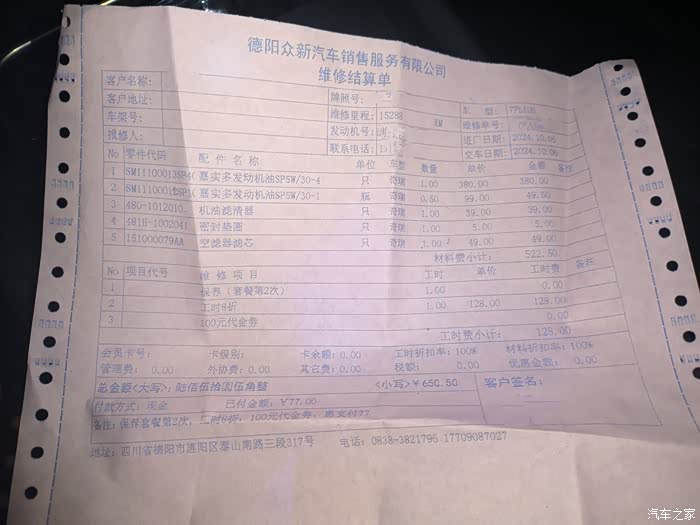 德阳众新汽车销售服务有限公司
维修结算单
客户名称: 牌照号:
客户地址: 维修里程: 15288 KM 车 型: 7PLUS
车架号: 发动机号: 维修单号:
报修人: 联系电话: 进厂日期: 2024.10.06
交车日期: 2024.10.06
No 零件代码 配 件 名 称 单位 车型 数量 单价 金额 备注
1 SM11100013SP4 嘉实多发动机油SP5W/30-4 只 奇瑞 1.00 380.00 380.00
2 嘉实多发动机油SP5W/30-1 瓶 奇瑞 0.50 99.00 49.50
3 480-1012010 机油滤清器 只 奇瑞 1.00 39.00 39.00
4 481H-1002041 密封垫圈 只 奇瑞 1.00 5.00 5.00
5 151000079AA 空滤器滤芯 只 奇瑞 1.00 49.00 49.00
材料费小计: 522.50
No 项目代号 维 修 项 目 工时 单价 工时费 备注
1 保养(套餐第2次) 1.00 0.00
2 工时8折 1.00 128.00 128.00
3 100元代金券 0.00
工时费小计: 128.00
会员卡号: 卡级别: 卡余额: 0.00 工时折扣率: 100% 材料折扣率: 100%
管理费: 0.00 外协费: 0.00 其它费: 0.00 税额: 0.00 优惠金额: 0.00
总金额<大写>: 陆佰伍拾圆伍角整 <小写>¥650.50 客户签名:
付款方式: 现金 已付金额: ¥77.00
备注: 保养套餐第2次, 工时8折, 100元代金券, 惠支付77
地址: 四川省德阳市旌阳区泰山南路三段317号 电话: 0838-3821796 17709087027
汽车之家